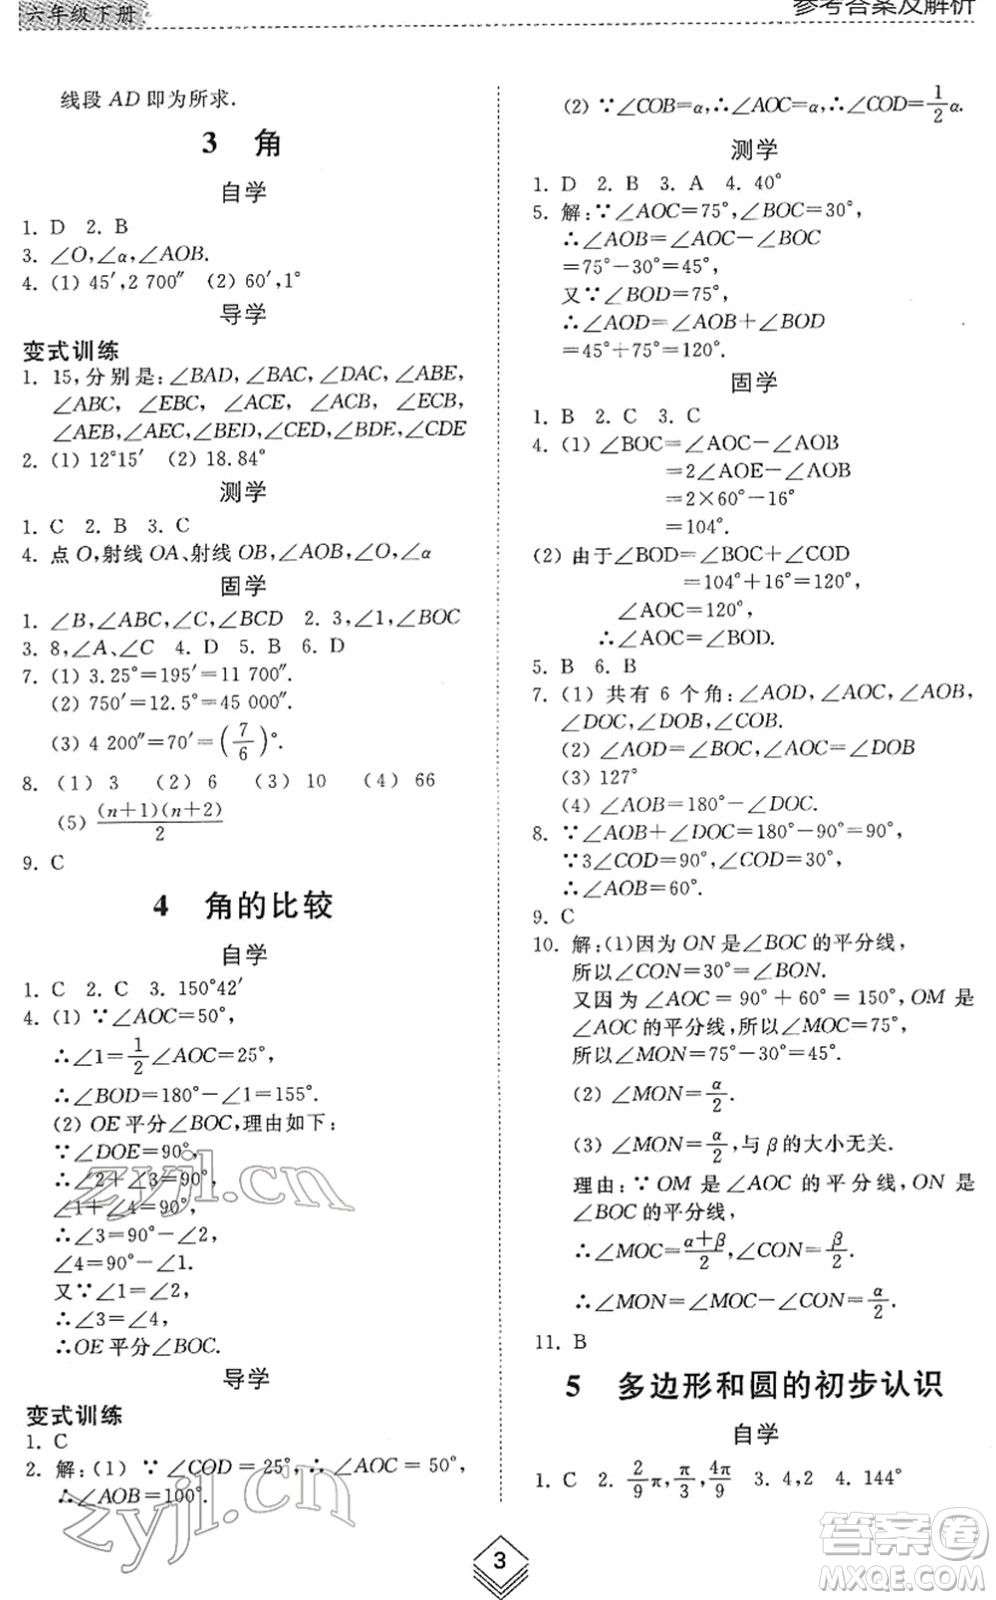 六年级下册
参考答案及解析
线段 AD 即为所求.
3 角
自学
1. D 2. B
3. ∠O,∠α,∠AOB.
4. (1) 45′,2 700″ (2) 60′,1°
导学
变式训练
1. 15,分别是:∠BAD,∠BAC,∠DAC,∠ABE,
∠ABC, ∠EBC, ∠ACE, ∠ACB, ∠ECB,
∠AEB,∠AEC,∠BED,∠CED,∠BDE,∠CDE
2. (1) 12°15′ (2) 18.84°
测学
1. C 2. B 3. C
4. 点 O,射线 OA、射线 OB,∠AOB,∠O,∠α
固学
1. ∠B,∠ABC,∠C,∠BCD 2. 3,∠1,∠BOC
3. 8,∠A、∠C 4. D 5. B 6. D
7. (1) 3.25°=195′=11 700″.
(2) 750′=12.5°=45 000″.
(3) 4 200″=70′=(7/6)°.
8. (1) 3 (2) 6 (3) 10 (4) 66
(5) (n+1)(n+2)/2
9. C
4 角的比较
自学
1. C 2. C 3. 150°42′
4. (1) ∵∠AOC=50°,
∴∠1=1/2∠AOC=25°,
∴∠BOD=180°-∠1=155°.
(2) OE 平分∠BOC,理由如下:
∵∠DOE=90°,
∴∠2+∠3=90°,
∠1+∠4=90°,
∴∠3=90°-∠2,
∠4=90°-∠1.
又∵∠1=∠2,
∴∠3=∠4,
∴OE 平分∠BOC.
导学
变式训练
1. C
2. 解:(1) ∵∠COD=25°,∴∠AOC=50°,
∴∠AOB=100°.
(2) ∵∠COB=α,∴∠AOC=α,∴∠COD=1/2α.
测学
1. D 2. B 3. A 4. 40°
5. 解:∵∠AOC=75°,∠BOC=30°,
∴∠AOB=∠AOC-∠BOC
=75°-30°=45°,
又∵∠BOD=75°,
∴∠AOD=∠AOB+∠BOD
=45°+75°=120°.
固学
1. B 2. C 3. C
4. (1) ∠BOC=∠AOC-∠AOB
=2∠AOE-∠AOB
=2×60°-16°
=104°.
(2) 由于∠BOD=∠BOC+∠COD
=104°+16°=120°,
∠AOC=120°,
∴∠AOC=∠BOD.
5. B 6. B
7. (1) 共有 6 个角:∠AOD,∠AOC,∠AOB,
∠DOC,∠DOB,∠COB.
(2) ∠AOD=∠BOC,∠AOC=∠DOB
(3) 127°
(4) ∠AOB=180°-∠DOC.
8. ∵∠AOB+∠DOC=180°-90°=90°,
∵3∠COD=90°,∠COD=30°,
∴∠AOB=60°.
9. C
10. 解:(1)因为 ON 是∠BOC 的平分线,
所以∠CON=30°=∠BON.
又因为∠AOC=90°+60°=150°,OM 是
∠AOC 的平分线,所以∠MOC=75°,
所以∠MON=75°-30°=45°.
(2) ∠MON=α/2.
(3) ∠MON=α/2,与β的大小无关.
理由:∵OM 是∠AOC 的平分线,ON 是
∠BOC 的平分线,
∴∠MOC=(α+β)/2,∠CON=β/2.
∴∠MON=∠MOC-∠CON=α/2.
11. B
5 多边形和圆的初步认识
自学
1. C 2. 2/9π,π/3,4π/9 3. 4,2 4. 144°
zyjl.cn
zyjl.cn
3
答案圈
MXQE.COM